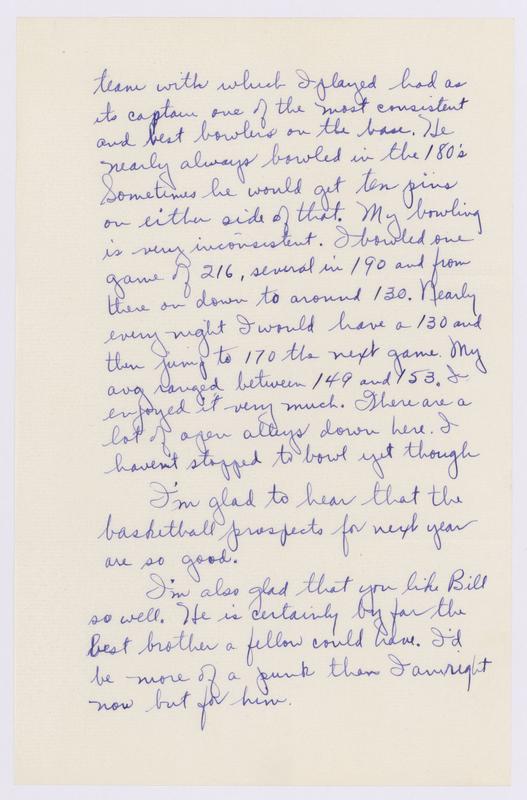 team with which I played had as
its captain one of the most consistent
and best bowlers on the base. He
nearly always bowled in the 180's
Sometimes he would get ten pins
on either side of that. My bowling
is very inconsistent. I bowled one
game of 216, several in 190 and from
there on down to around 130. Nearly
every night I would have a 130 and
then jump to 170 the next game. My
avg ranged between 149 and 153. I
enjoyed it very much. There are a
lot of open alleys down here. I
haven't stopped to bowl yet though
I'm glad to hear that the
basketball prospects for next year
are so good.
I'm also glad that you like Bill
so well. He is certainly by far the
best brother a fellow could have. I'd
be more of a punk than I am right
now but for him.